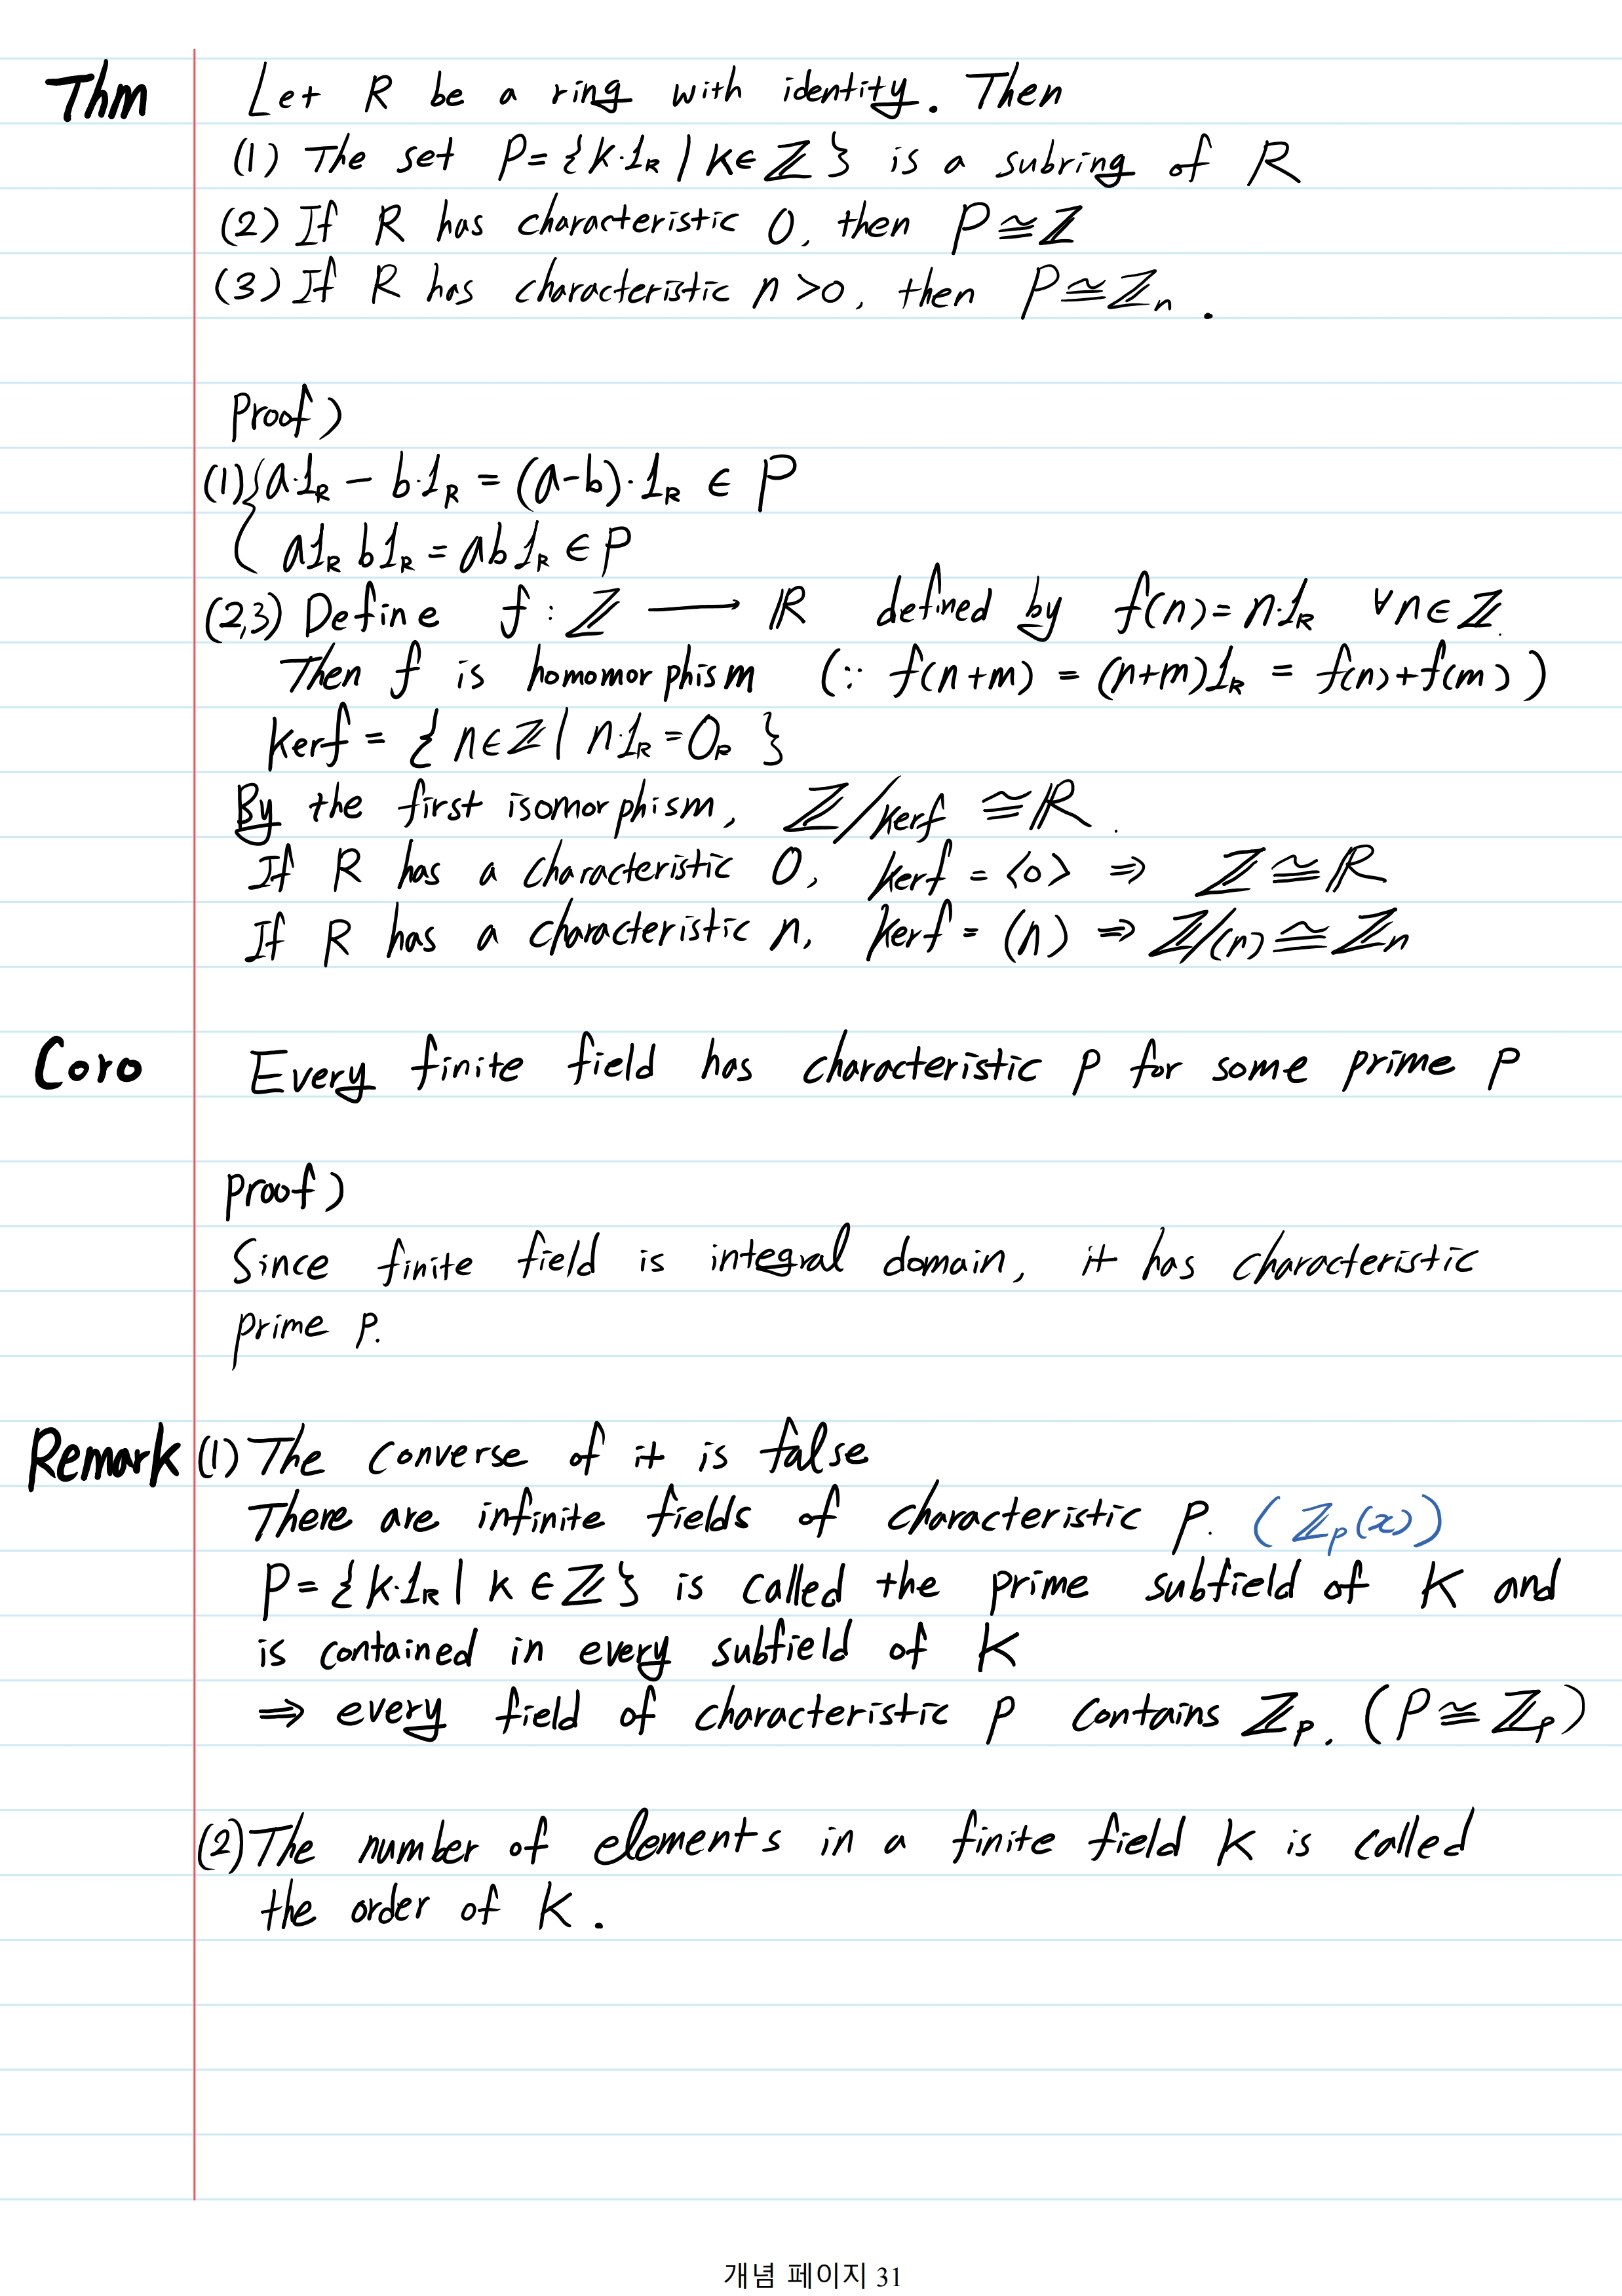 Thm Let R be a ring with identity. Then
(1) The set P = {k·1_R | k∈ℤ} is a subring of R
(2) If R has characteristic 0, then P≅ℤ
(3) If R has characteristic n>0, then P≅ℤ_n.
Proof)
(1) { a·1_R − b·1_R = (a-b)·1_R ∈ P
a1_R b1_R = ab1_R ∈ P
(2,3) Define f : ℤ ⟶ ℝ defined by f(n) = n·1_R ∀n∈ℤ.
Then f is homomorphism (∵ f(n+m) = (n+m)1_R = f(n)+f(m))
Kerf = { n∈ℤ | n·1_R = 0_R }
By the first isomorphism, ℤ/Kerf ≅ ℝ.
If R has a characteristic 0, Kerf = <0> ⇒ ℤ ≅ ℝ
If R has a characteristic n, Kerf = (n) ⇒ ℤ/(n) ≅ ℤ_n
Coro Every finite field has characteristic p for some prime p
proof)
Since finite field is integral domain, it has characteristic
prime p.
Remark (1) The converse of it is false
There are infinite fields of characteristic p. (ℤ_p(x))
P = {k·1_R | k ∈ ℤ} is called the prime subfield of K and
is contained in every subfield of K
⇒ every field of characteristic p contains ℤ_p. (P ≅ ℤ_p)
(2) The number of elements in a finite field K is called
the order of K.
개념 페이지 31